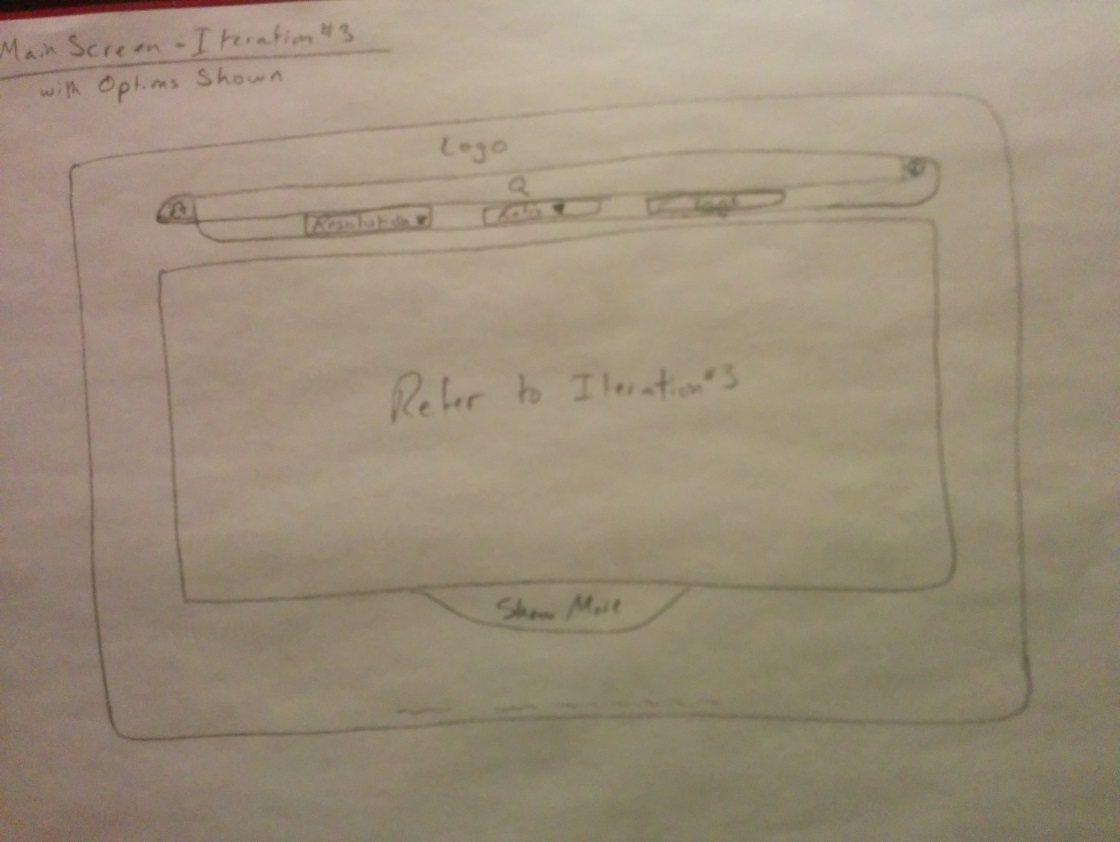 Main Screen - Iteration #3
with Options Shown
Logo
Resolution
Ratio
Tags
Refer to Iteration #3
Show More